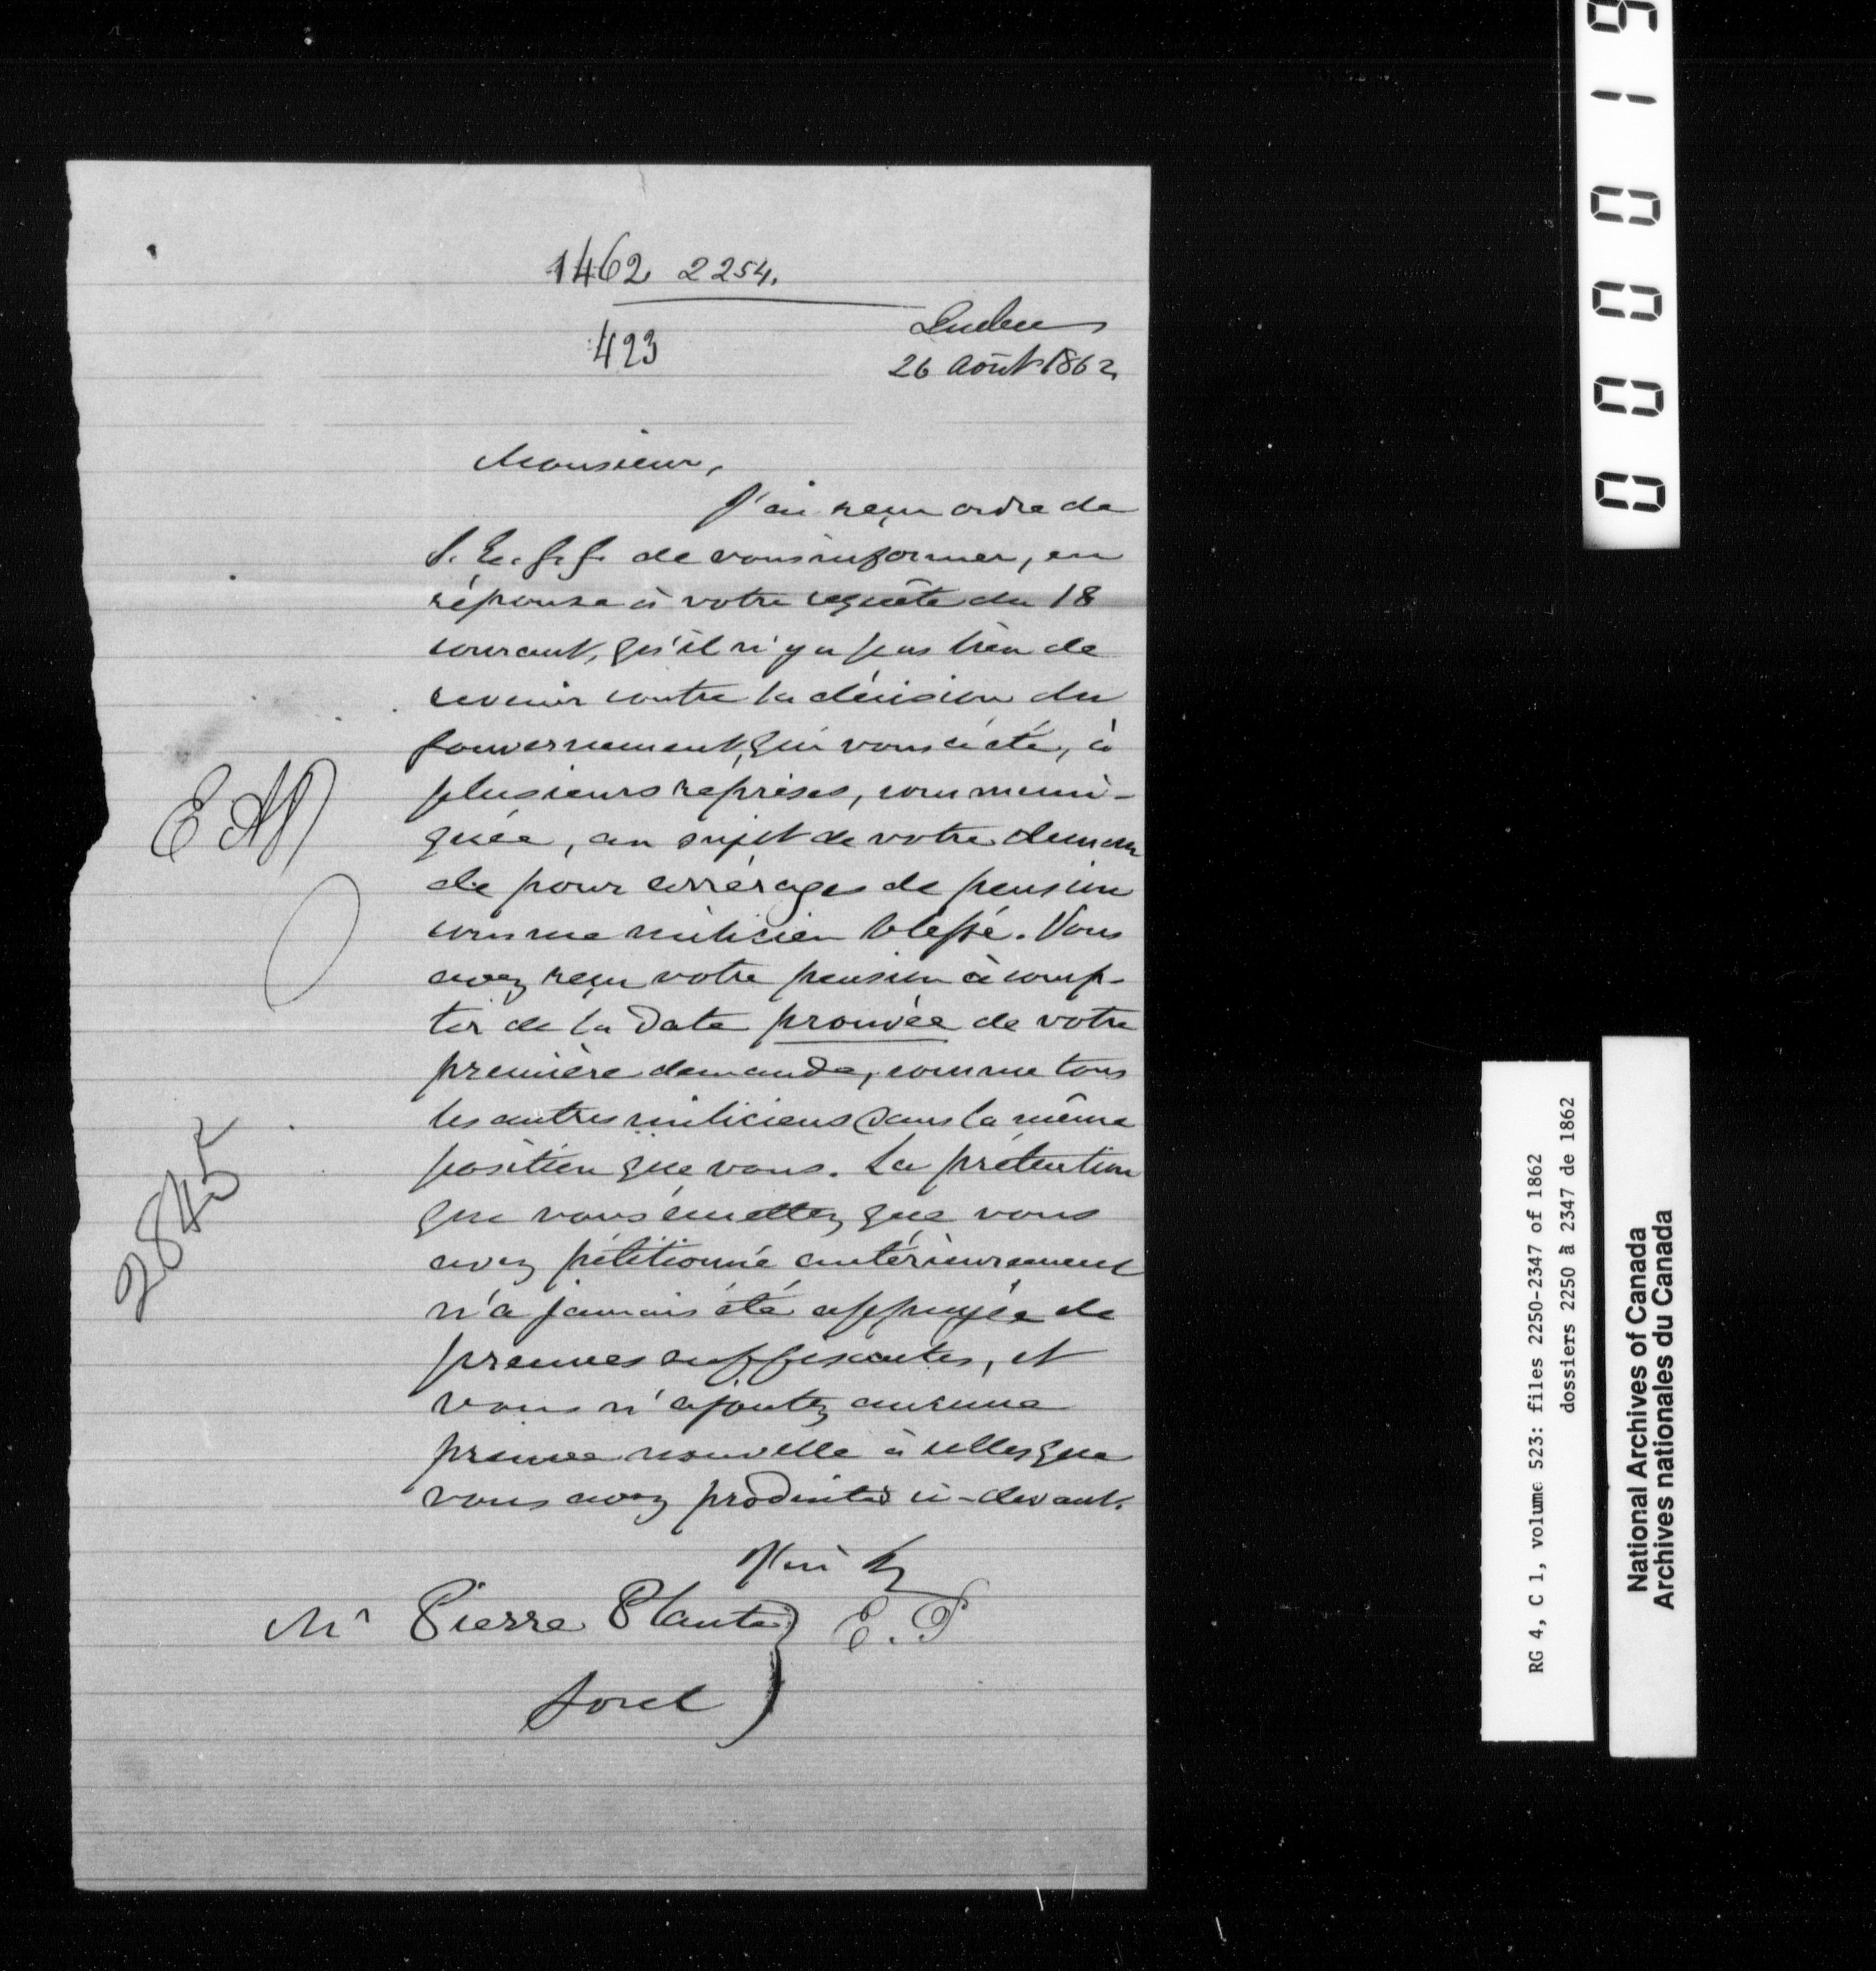 1462 2254.
423
Quebec
26 Août 1862
Monsieur,
J'ai reçu ordre de
S. E. G. G. de vous informer, en
réponse à votre requête du 18
courant, qu'il n'y a pas lieu de
revenir contre la décision du
Gouvernement, qui vous a été, à
plusieurs reprises, communi-
quée, au sujet de votre deman
de pour arrérages de pension
comme milicien blessé. Vous
avez reçu votre pension à comp-
ter de la date prouvée de votre
première demande, comme tous
les autres miliciens dans la même
position que vous. La prétention
que vous émettez que vous
avez pétitionné antérieurement
n'a jamais été appuyée de
preuves suffisantes, et
vous n'ajoutez aucune
preuve nouvelle à celles que
vous avez produites ci-devant.
J'ai &c
Mr Pierre Plante
E. P
Sorel
2845
000019
RG 4, C 1, volume 523: files 2250-2347 of 1862
dossiers 2250 à 2347 de 1862
National Archives of Canada
Archives nationales du Canada